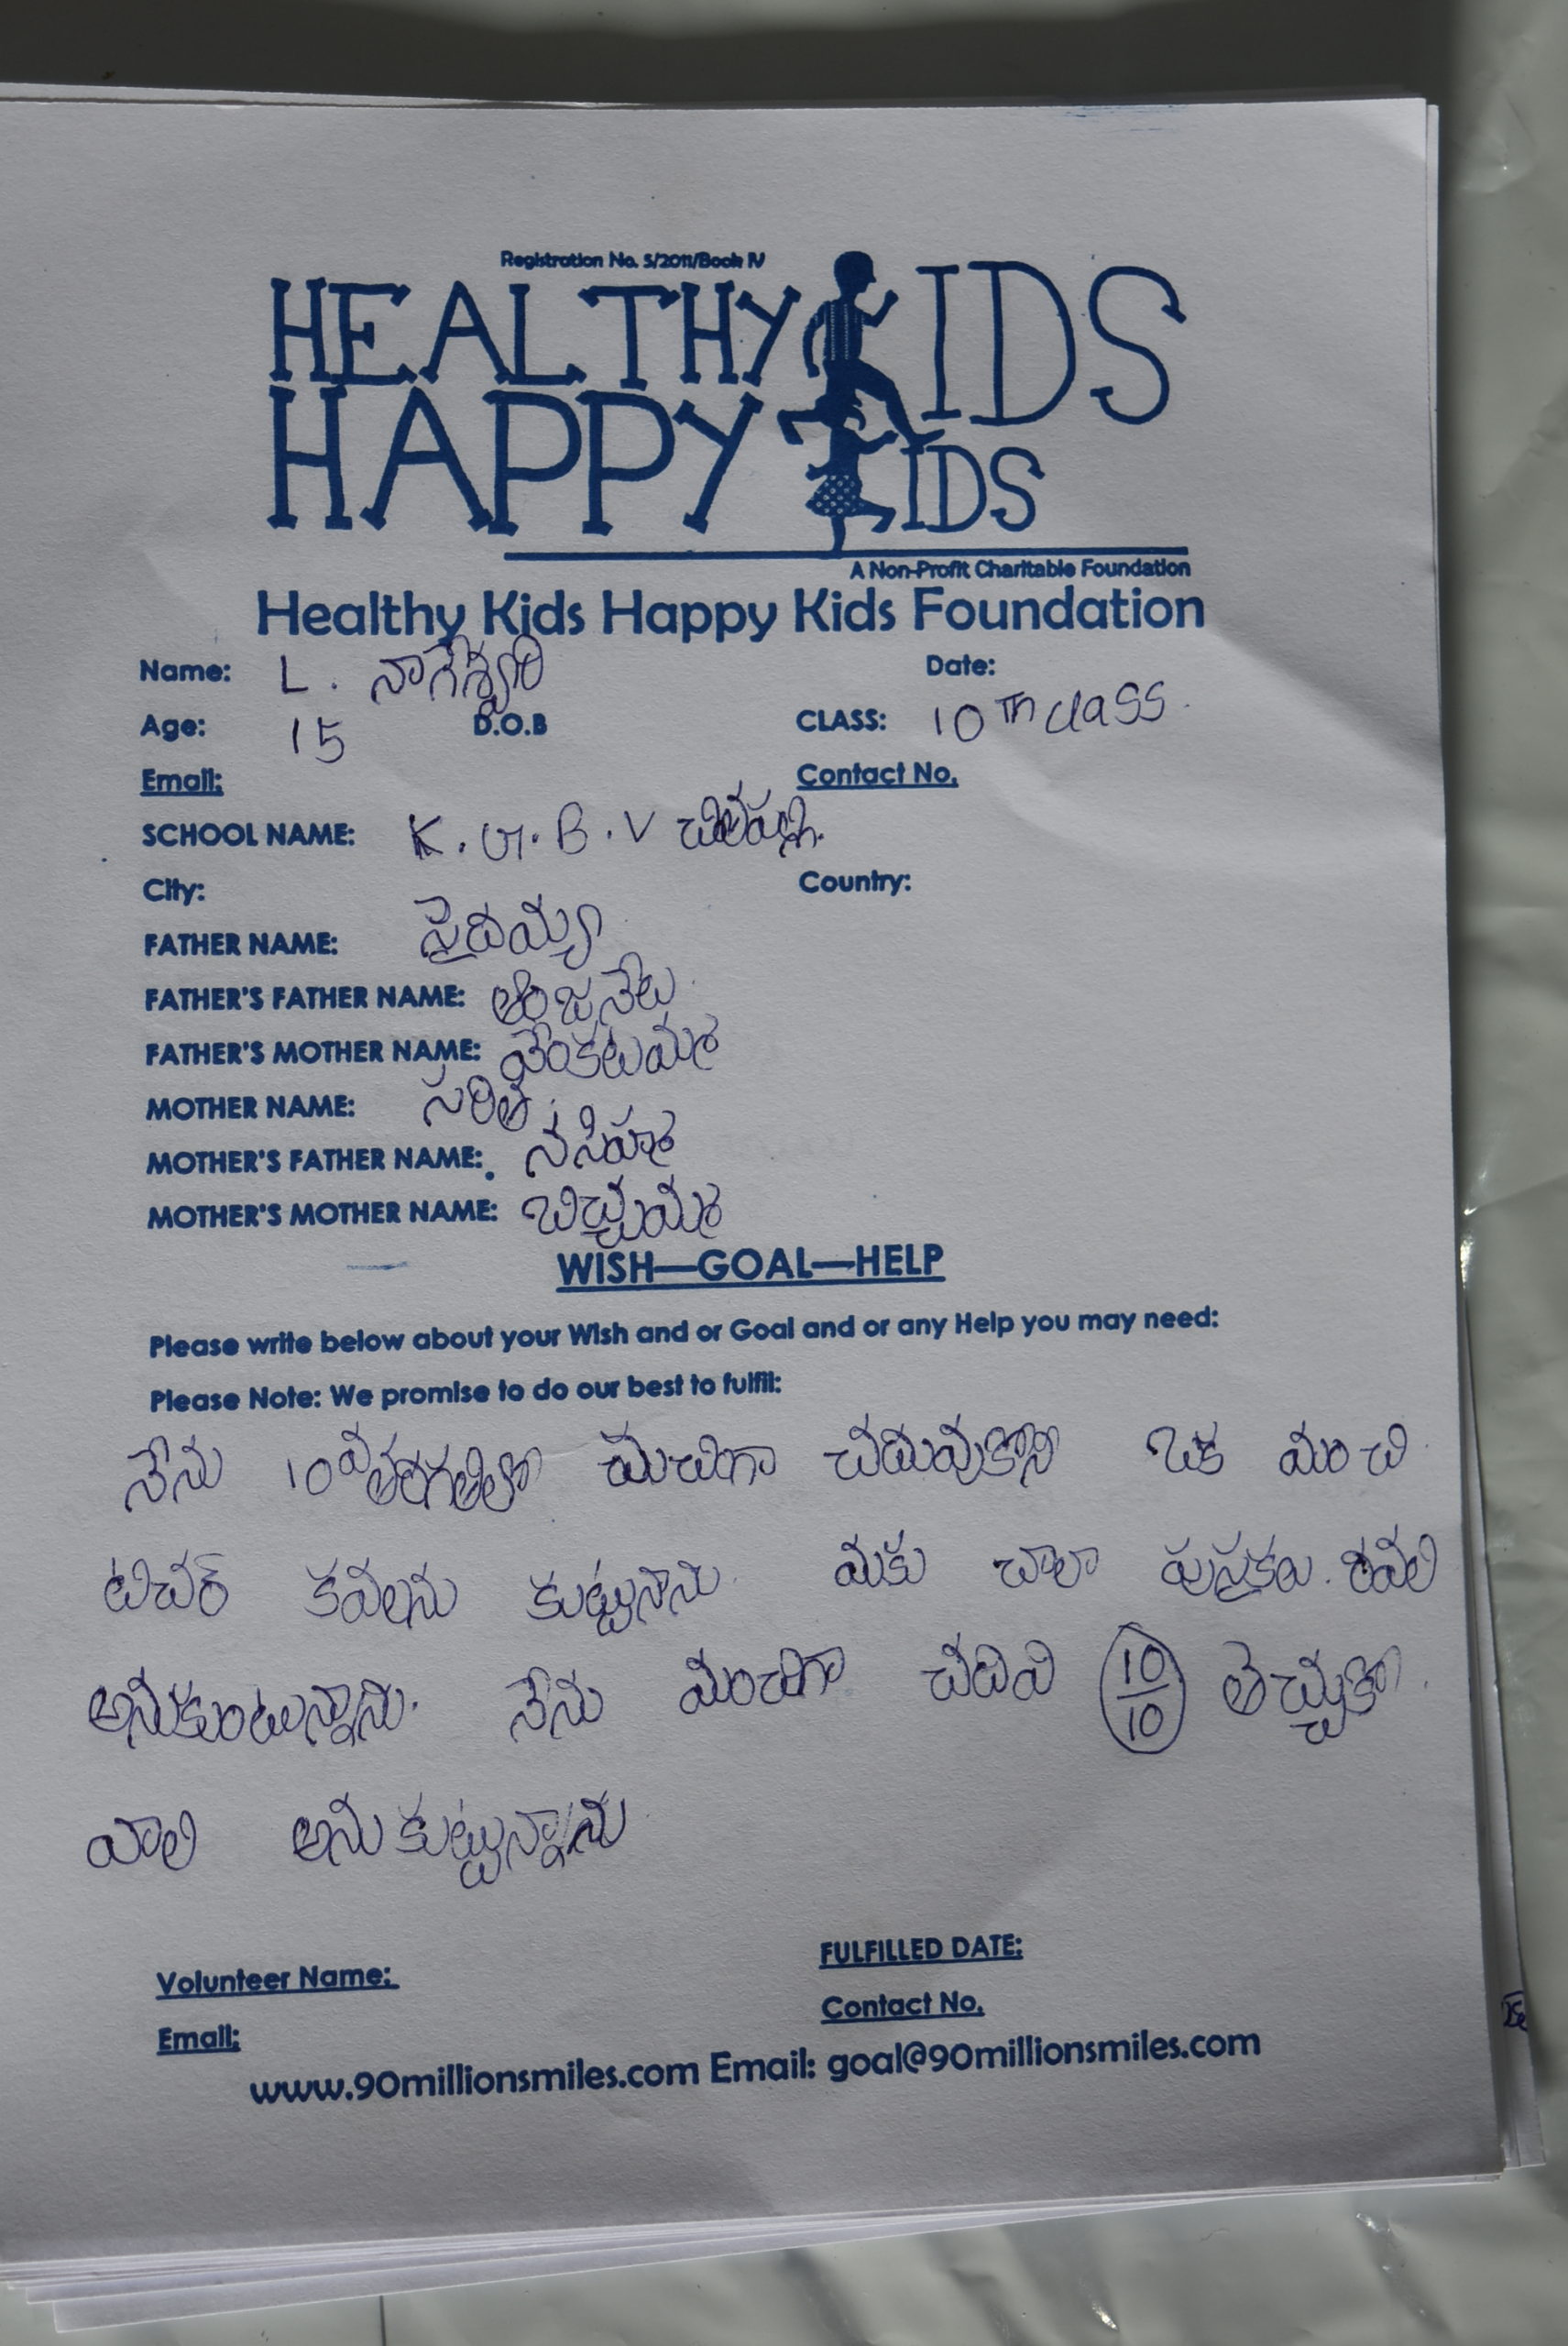 Registration No. 5/2011/Book IV
HEALTHY KIDS
HAPPY KIDS
A Non-Profit Charitable Foundation
Healthy Kids Happy Kids Foundation
Name: L. నాగేశ్వరి Date:
Age: 15 D.O.B CLASS: 10TH class.
Email: Contact No.
SCHOOL NAME: K.G.B.V
City: Country:
FATHER NAME: సైదయ్యా
FATHER'S FATHER NAME: ఆంజనేలు
FATHER'S MOTHER NAME: వేంకటమ్మ
MOTHER NAME: సరిత
MOTHER'S FATHER NAME:
MOTHER'S MOTHER NAME: బిచ్చుమ్మ
WISH—GOAL—HELP
Please write below about your Wish and or Goal and or any Help you may need:
Please Note: We promise to do our best to fulfil:
నేను 10వతరగతిలో చదువుకోని ఒక మంచి
టిచర్ కవలను కుట్టునాను. మకు చాలా పుస్తకలు.
అనుకుంటున్నాను. నేను మంచిగా చదివి 10/10 తెచ్చుకో
వాలి అను కుట్టున్నాను
Volunteer Name: FULFILLED DATE:
Email: Contact No.
www.90millionsmiles.com Email: goal@90millionsmiles.com